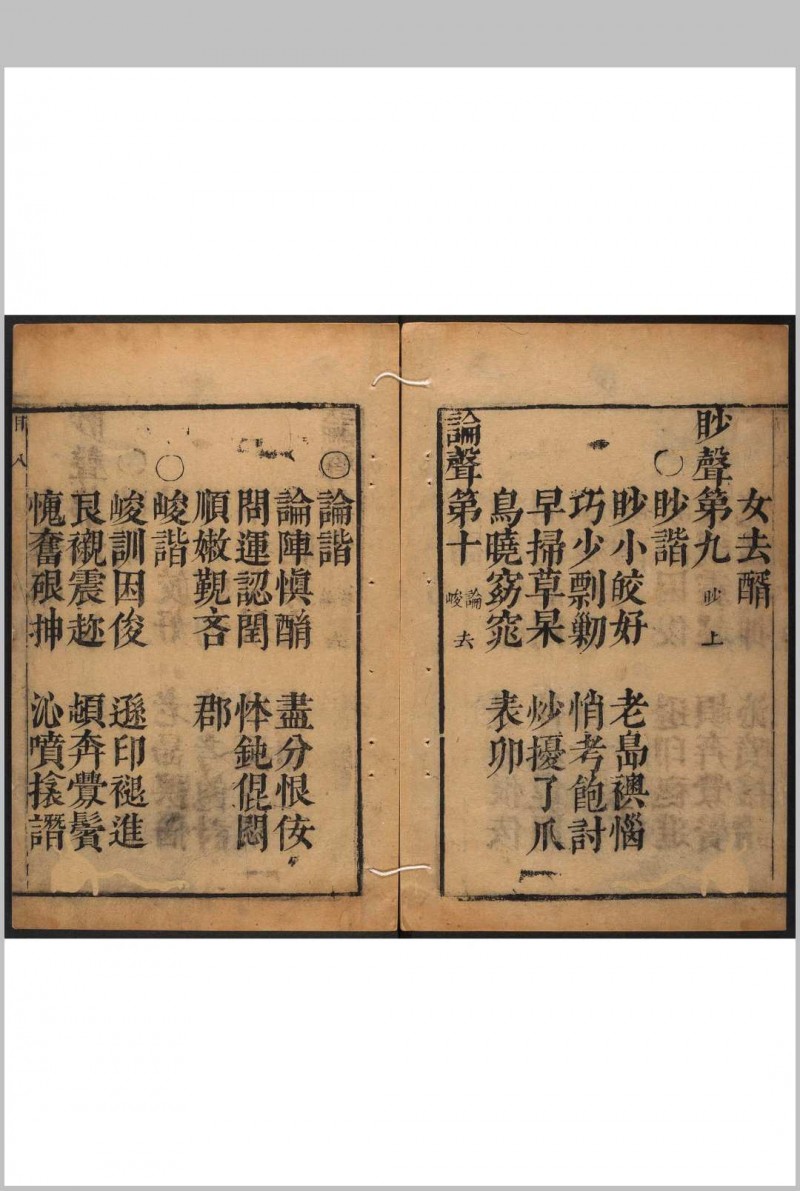 女去醑
眇聲第九 眇上
〇眇諧
眇小皎好 老晑襖惱
巧少剽勦 悄考飽討
早掃草杲 炒擾了爪
鳥曉窈窕 表卯
論聲第十 論峻去
〇論諧
論陣愼酳 盡分恨佽
問運認閏 体鈍倱悶
順嫩覲吝 郡
〇峻諧
峻訓困俊 遜印褪進
艮襯震趂 頓奔釁鬢
愧奮硍抻 沁噴搇譖
目 八